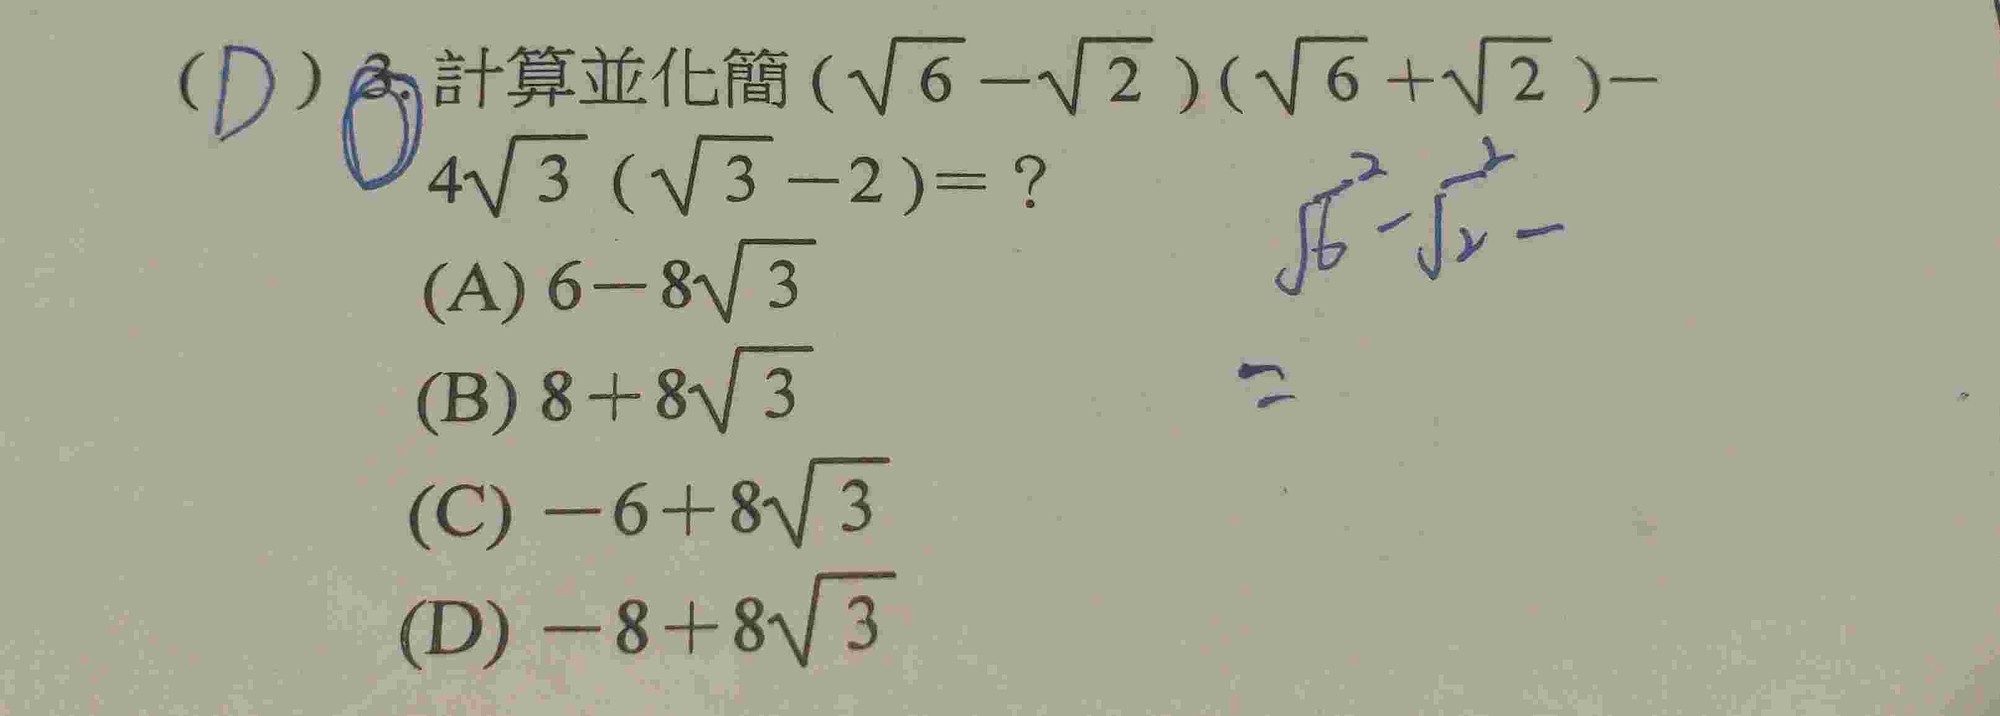 (D) 3. 計算並化簡(√6－√2)(√6＋√2)－
4√3(√3－2)＝？
(A) 6－8√3
(B) 8＋8√3
(C) －6＋8√3
(D) －8＋8√3
√6²-√2²-
=